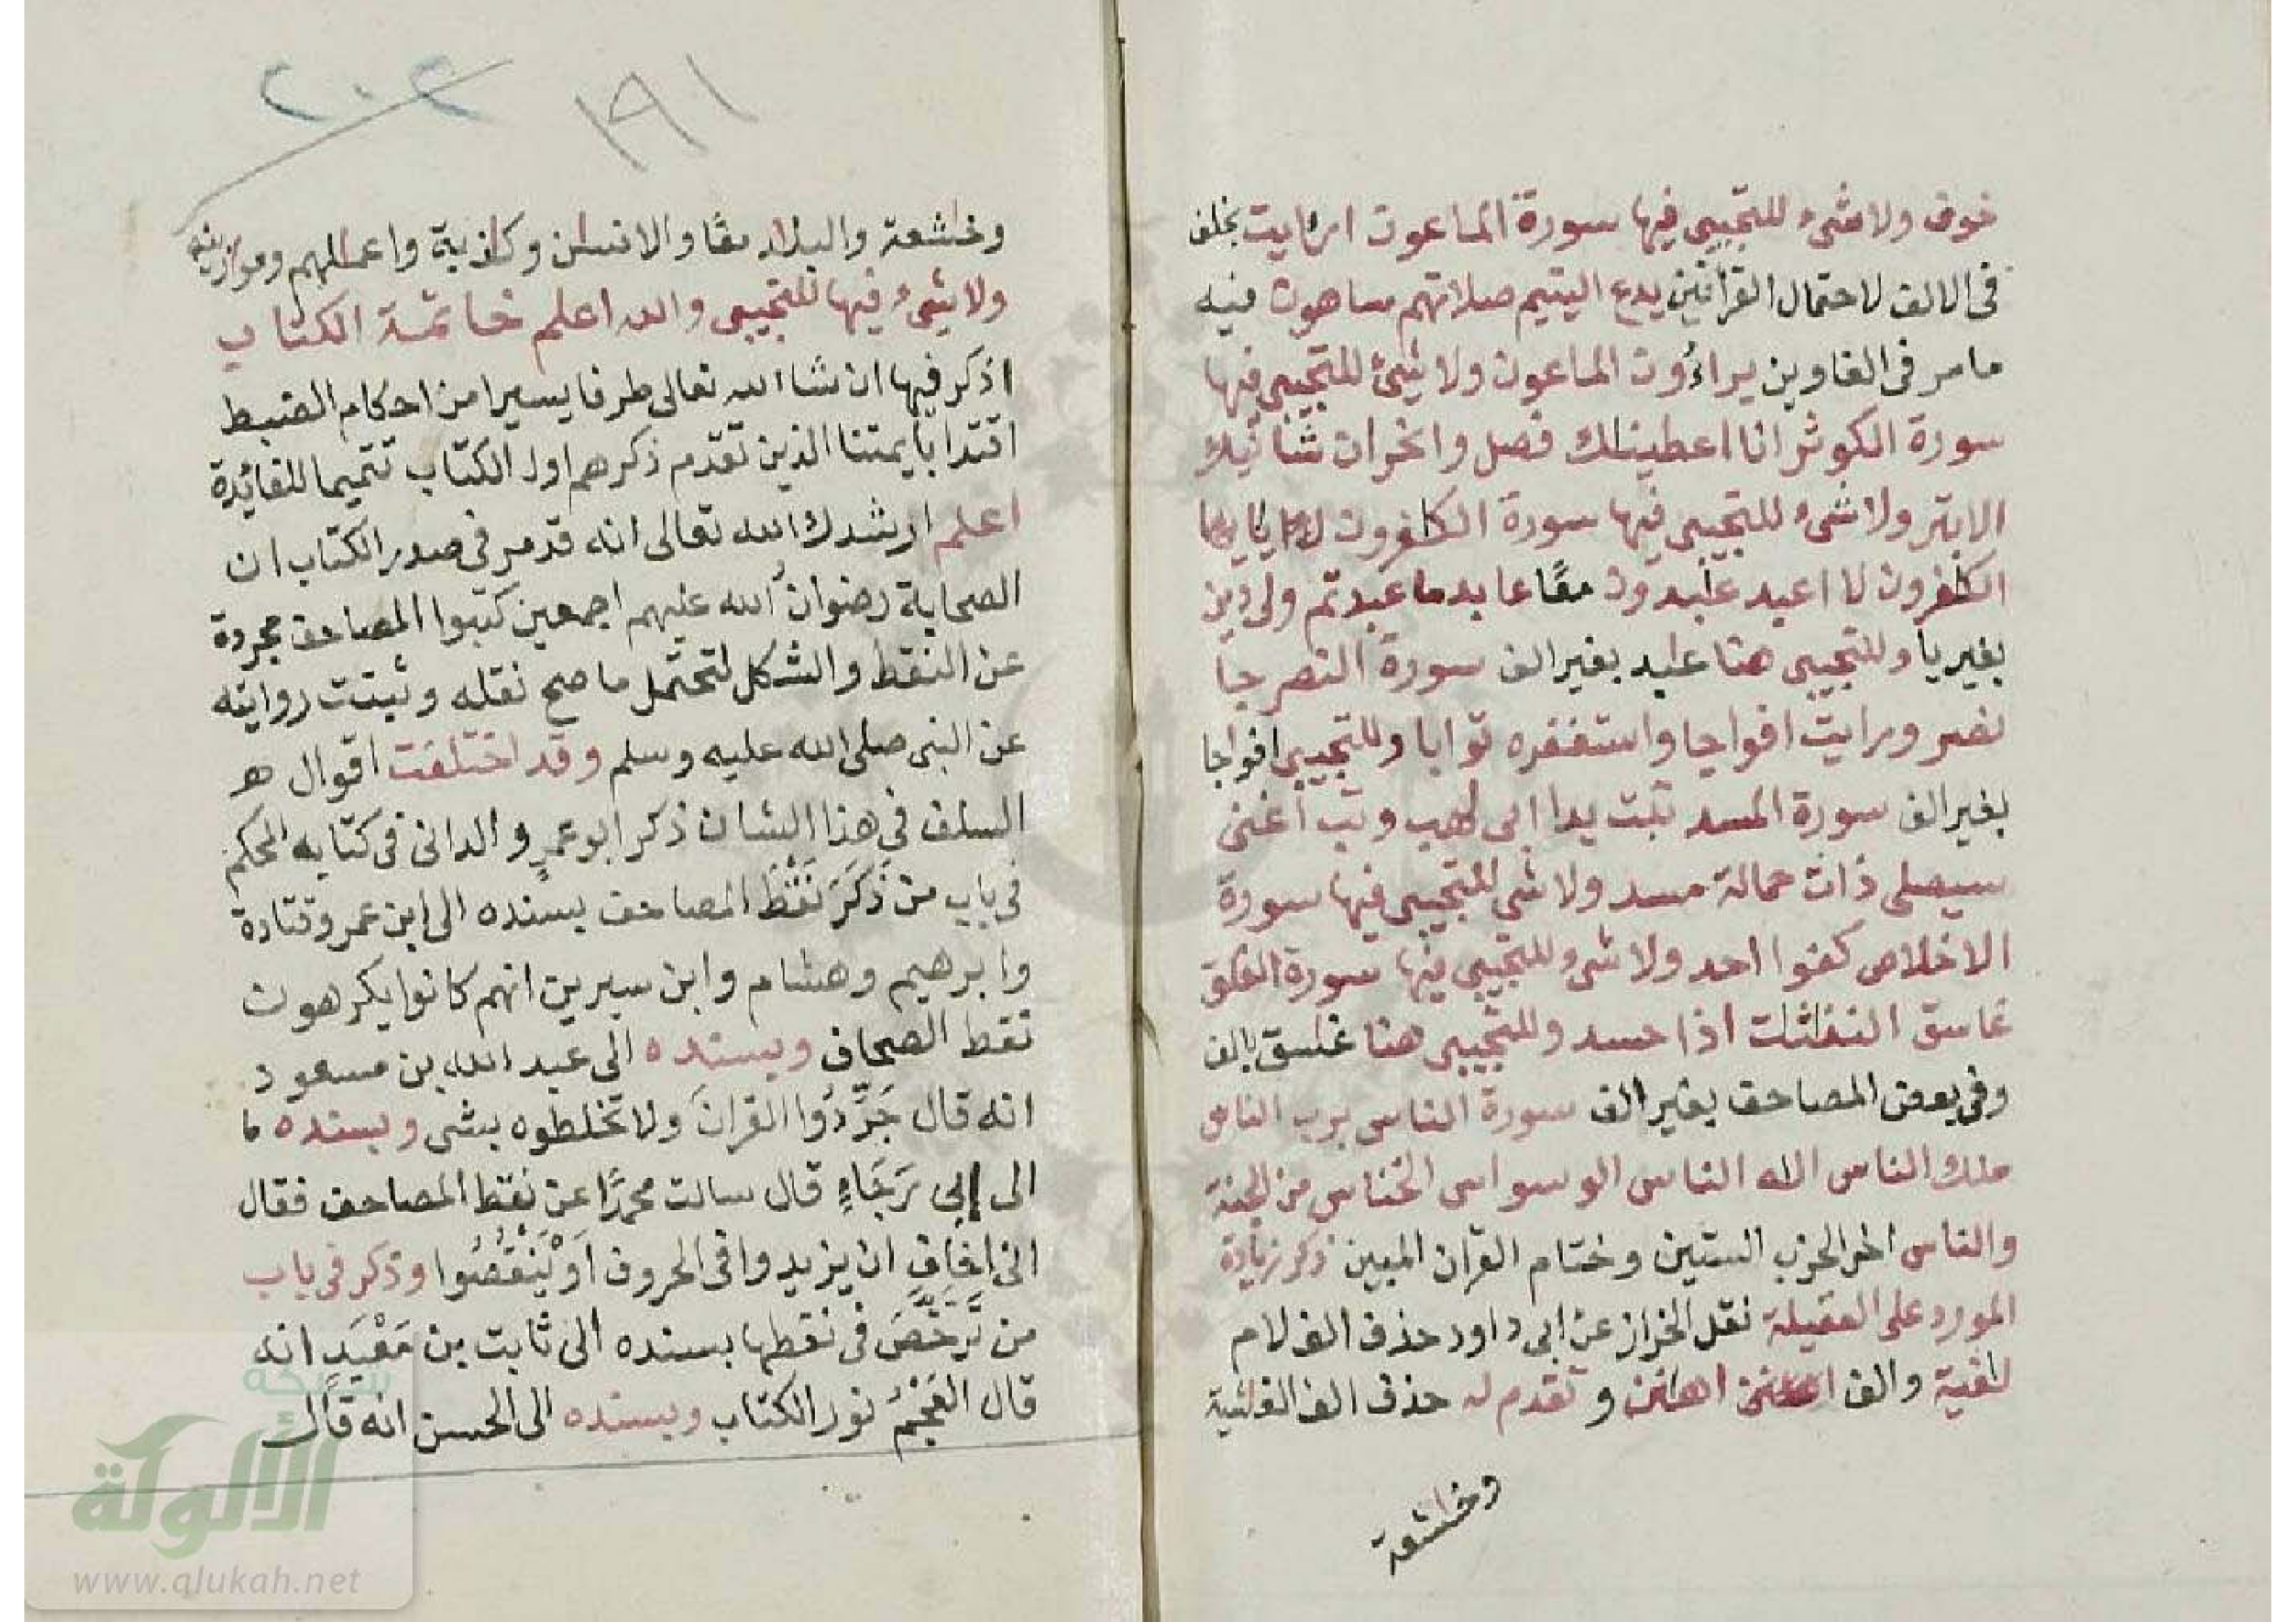 خوف ولا شىء للتجيبى فيها سورة الماعون ارايت بخلف
فى الالف لاحتمال القراءتين يدع اليتيم صلاتهم ساهون فيه
ما مر فى الغاوين يراءون الماعون ولا شىء للتجيبى فيها
سورة الكوثر انا اعطينك فصل وانحر ان شانئك
الابتر ولا شىء للتجيبى فيها سورة الكفرون يايها
الكفرون لا اعبد عبدون معًا عابد ما عبدتم ولى دين
بغير يا وللتجيبى هنا عبد بغير الف سورة النصر جا
نصر ورايت افواجا واستغفره توابا وللتجيبى افواجا
بغير الف سورة المسد تبت يدا ابى لهب وتب اغنى
سيصلى ذات حمالة مسد ولا شى للتجيبى فيها سورة
الاخلاص كفوا احد ولا شىء للتجيبى فيها سورة الفلق
غاسق النفثت اذا حسد وللتجيبى هنا غسق بالف
وفى بعض المصاحف بغير الف سورة الناس برب الناس
ملك الناس اله الناس الوسواس الخناس من الجنة
والناس اخر الحزب الستين وختام القران المبين ذكر زيادة
المورد على العقيلة نقل الخراز عن ابى داود حذف الف لام
لغية والف اهنن وتقدم له حذف الف
وخشعة
١٩١
٢٠٢
وخشعة والبلد معًا والانسن وكذبة واعملهم وموزينه
ولا شىء فيها للتجيبى والله اعلم خاتمة الكتاب
اذكر فيها ان شا الله تعالى طرفا يسيرا من احكام الضبط
اقتدا بايمتنا الذين تقدم ذكرهم اول الكتاب تتميما للفائدة
اعلم ارشدك الله تعالى انه قد مر فى صدر الكتاب ان
الصحابة رضوان الله عليهم اجمعين كتبوا المصاحف مجردة
عن النقط والشكل لتحتمل ما صح نقله وثبتت روايته
عن النبى صلى الله عليه وسلم وقد اختلفت اقوال
السلف فى هذا الشان ذكر ابو عمرٍو الدانى فى كتابه المحكم
فى باب من ذَكَرَ نَقْطَ المصاحف بسنده الى ابن عمر وقتادة
وابرهيم وهشام وابن سيرين انهم كانوا يكرهون
نقط المصاحف وبسنده الى عبد الله بن مسعود
انه قال جَرِّدُوا القرانَ ولا تخلطوه بشى وبسنده
الى ابى رَجَاءٍ قال سالت محمدًا عن نقط المصاحف فقال
انى اخاف ان يزيدوا فى الحروف اَوْ يَنْقُصُوا وذكر فى باب
من تَرَخَّصَ فى نقطها بسنده الى ثابت بن مَعْبَدٍ انه
قال العَجْمُ نور الكتاب وبسنده الى الحسن انه قال
شبكة
الألوكة
www.alukah.net